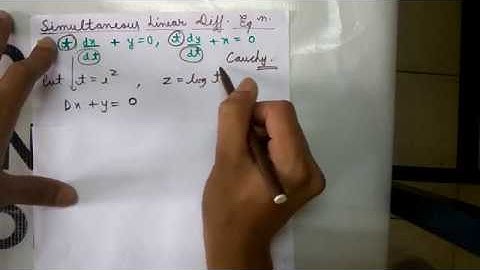 Simultaneous Linear Diff. Eqn.
t dx/dt + y = 0, t dy/dt + x = 0
Cauchy.
Put t = e^z , z = log t
Dx + y = 0